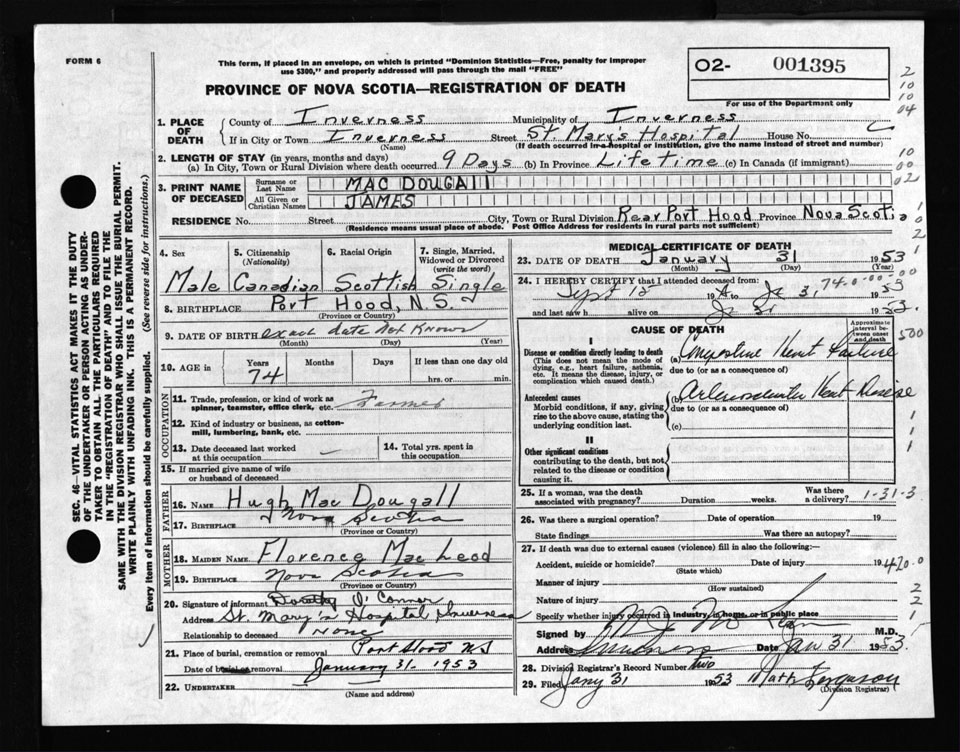 FORM 6
This form, if placed in an envelope, on which is printed "Dominion Statistics—Free, penalty for improper
use $300," and properly addressed will pass through the mail "FREE"
PROVINCE OF NOVA SCOTIA—REGISTRATION OF DEATH
02- 001395
For use of the Department only
2
10
10
04
1. PLACE OF DEATH
County of Inverness Municipality of Inverness
If in City or Town Inverness Street St. Mary's Hospital House No.
(Name) (If death occurred in a hospital or institution, give the name instead of street and number)
2. LENGTH OF STAY (in years, months and days)
(a) In City, Town or Rural Division where death occurred 9 Days (b) In Province Lifetime (c) In Canada (if immigrant)
10
00
02
3. PRINT NAME OF DECEASED
Surname or Last Name MAC DOUGALL
All Given or Christian Names JAMES
RESIDENCE No. Street City, Town or Rural Division Rear Port Hood Province Nova Scotia
(Residence means usual place of abode. Post Office Address for residents in rural parts not sufficient)
1
0
2
4. Sex
Male
5. Citizenship
(Nationality)
Canadian
6. Racial Origin
Scottish
7. Single, Married,
Widowed or Divorced
(write the word)
Single
8. BIRTHPLACE Port Hood, N.S.
(Province or Country)
9. DATE OF BIRTH exact date not known
(Month) (Day) (Year)
10. AGE in Years Months Days If less than one day old
74 hrs. or min.
OCCUPATION
11. Trade, profession, or kind of work as
spinner, teamster, office clerk, etc. Farmer
12. Kind of industry or business, as cotton-
mill, lumbering, bank, etc.
13. Date deceased last worked
at this occupation
14. Total yrs. spent in
this occupation
15. If married give name of wife
or husband of deceased
FATHER
16. NAME Hugh Mac Dougall
17. BIRTHPLACE Nova Scotia
(Province or Country)
MOTHER
18. MAIDEN NAME Florence Mac Leod
19. BIRTHPLACE Nova Scotia
(Province or Country)
20. Signature of informant Dorothy O'Connor
Address St. Mary's Hospital Inverness
Relationship to deceased None
21. Place of burial, cremation or removal Port Hood NS
Date of burial or removal January 31 1953
22. UNDERTAKER
(Name and address)
MEDICAL CERTIFICATE OF DEATH
23. DATE OF DEATH January 31 1953
(Month) (Day) (Year)
24. I HEREBY CERTIFY that I attended deceased from:
Sept 15 19 to 3 74.0-00-00 1953
and last saw h alive on 31 1953.
CAUSE OF DEATH
Approximate interval between onset and death
500
I
Disease or condition directly leading to death
(This does not mean the mode of
dying, e.g., heart failure, asthenia,
etc. It means the disease, injury, or
complication which caused death.)
(a) Congestive Heart Failure
due to (or as a consequence of)
Antecedent causes
Morbid conditions, if any, giving
rise to the above cause, stating the
underlying condition last.
(b) Arteriosclerotic Heart Disease
due to (or as a consequence of)
(c)
1
1
1
II
Other significant conditions
contributing to the death, but not
related to the disease or condition
causing it.
25. If a woman, was the death
associated with pregnancy? Duration weeks. Was there a delivery? 1-31-3
26. Was there a surgical operation? Date of operation 19
State findings Was there an autopsy?
27. If death was due to external causes (violence) fill in also the following:—
Accident, suicide or homicide? Date of injury 19 420.0
(State which)
Manner of injury
(How sustained)
Nature of injury
2
2
Specify whether injury occurred in industry, in home, or in public place
1
Signed by M.D.
Address Inverness Date Jan 31 1953.
28. Division Registrar's Record Number two
29. Filed Jany 31 1953 Math Ferguson
(Division Registrar)
SEC. 46—VITAL STATISTICS ACT MAKES IT THE DUTY
OF THE UNDERTAKER OR PERSON ACTING AS UNDER-
TAKER TO OBTAIN ALL THE PARTICULARS REQUIRED
IN THE "REGISTRATION OF DEATH" AND TO FILE THE
SAME WITH THE DIVISION REGISTRAR WHO SHALL ISSUE THE BURIAL PERMIT.
WRITE PLAINLY WITH UNFADING INK. THIS IS A PERMANENT RECORD.
Every item of information should be carefully supplied. (See reverse side for instructions.)